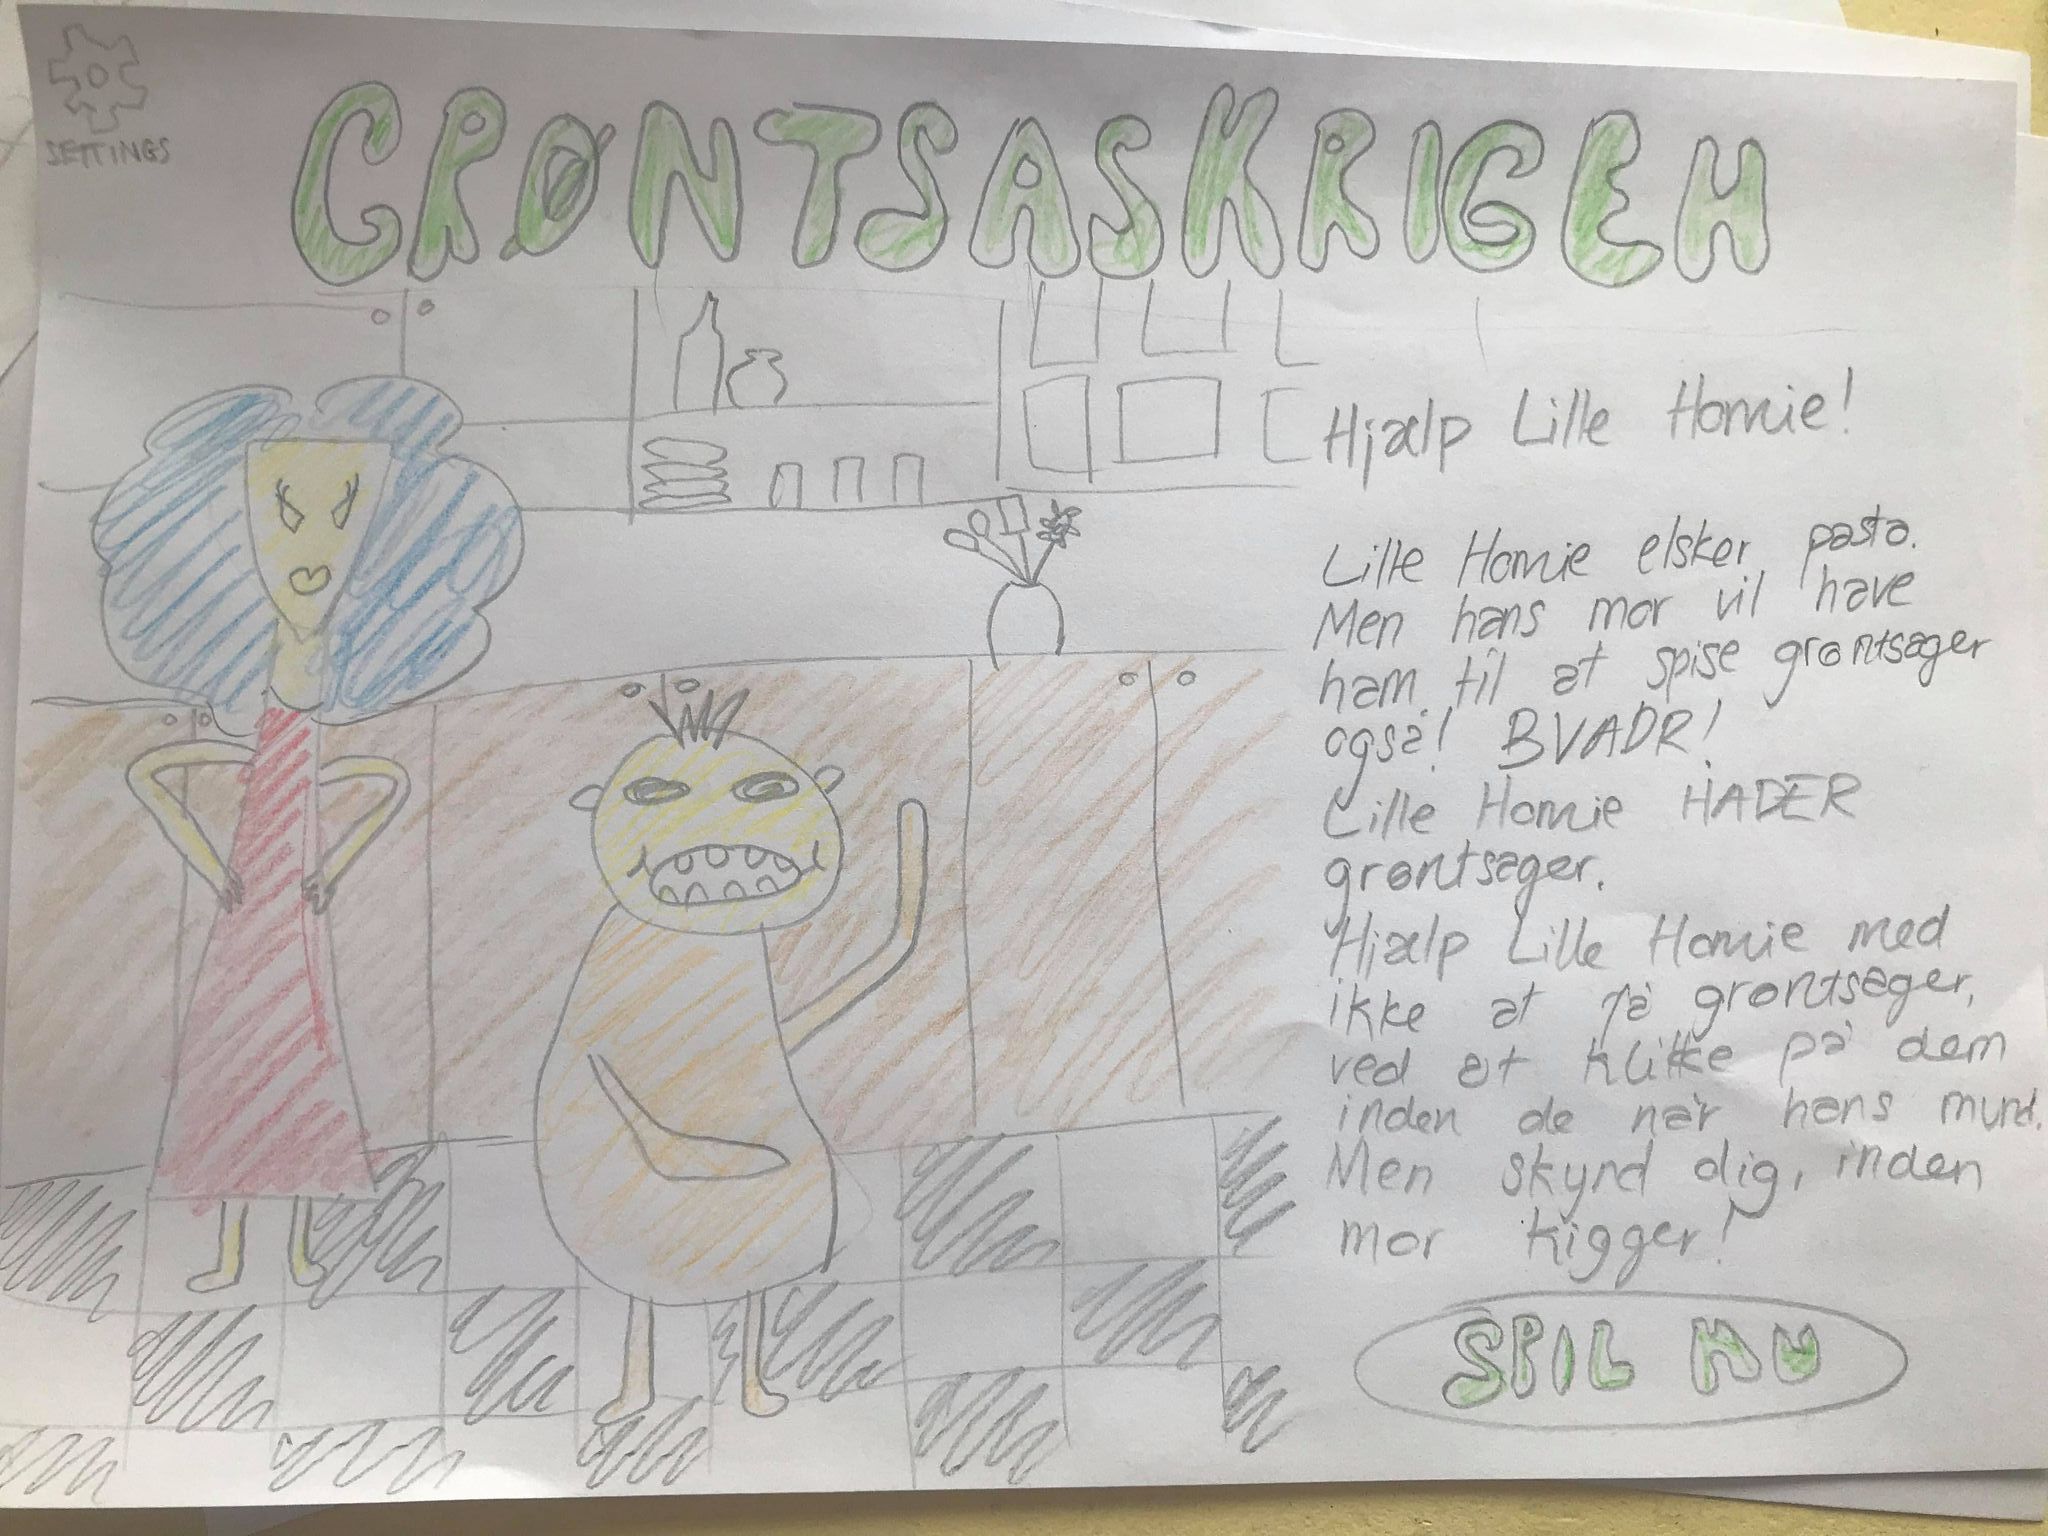 SETTINGS
GRØNTSASKRIGEN
Hjælp Lille Homie!
Lille Homie elsker pasta.
Men hans mor vil have
ham til at spise grøntsager
også! BVADR!
Lille Homie HADER
grøntsager.
Hjælp Lille Homie med
ikke at få grøntsager,
ved at klikke på dem
inden de når hans mund.
Men skynd dig, inden
mor kigger!
SPIL NU